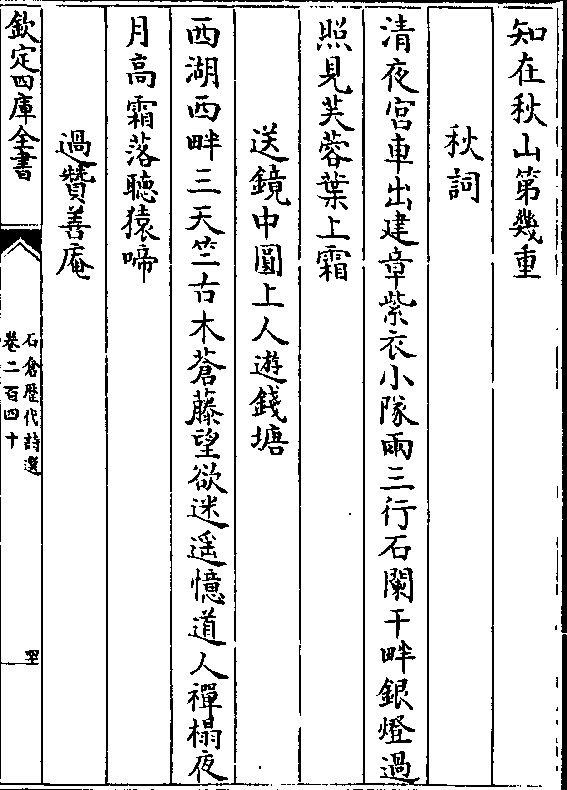 知在秋山第幾重
秋詞
清夜宮車出建章紫衣小隊兩三行石闌干畔銀燈過
照見芙蓉葉上霜
送鏡中圓上人遊錢塘
西湖西畔三天竺古木蒼藤望欲迷遥憶道人禪榻夜
月高霜落聽猿啼
過贊善庵
欽定四庫全書
石倉歴代詩選
卷二百四十